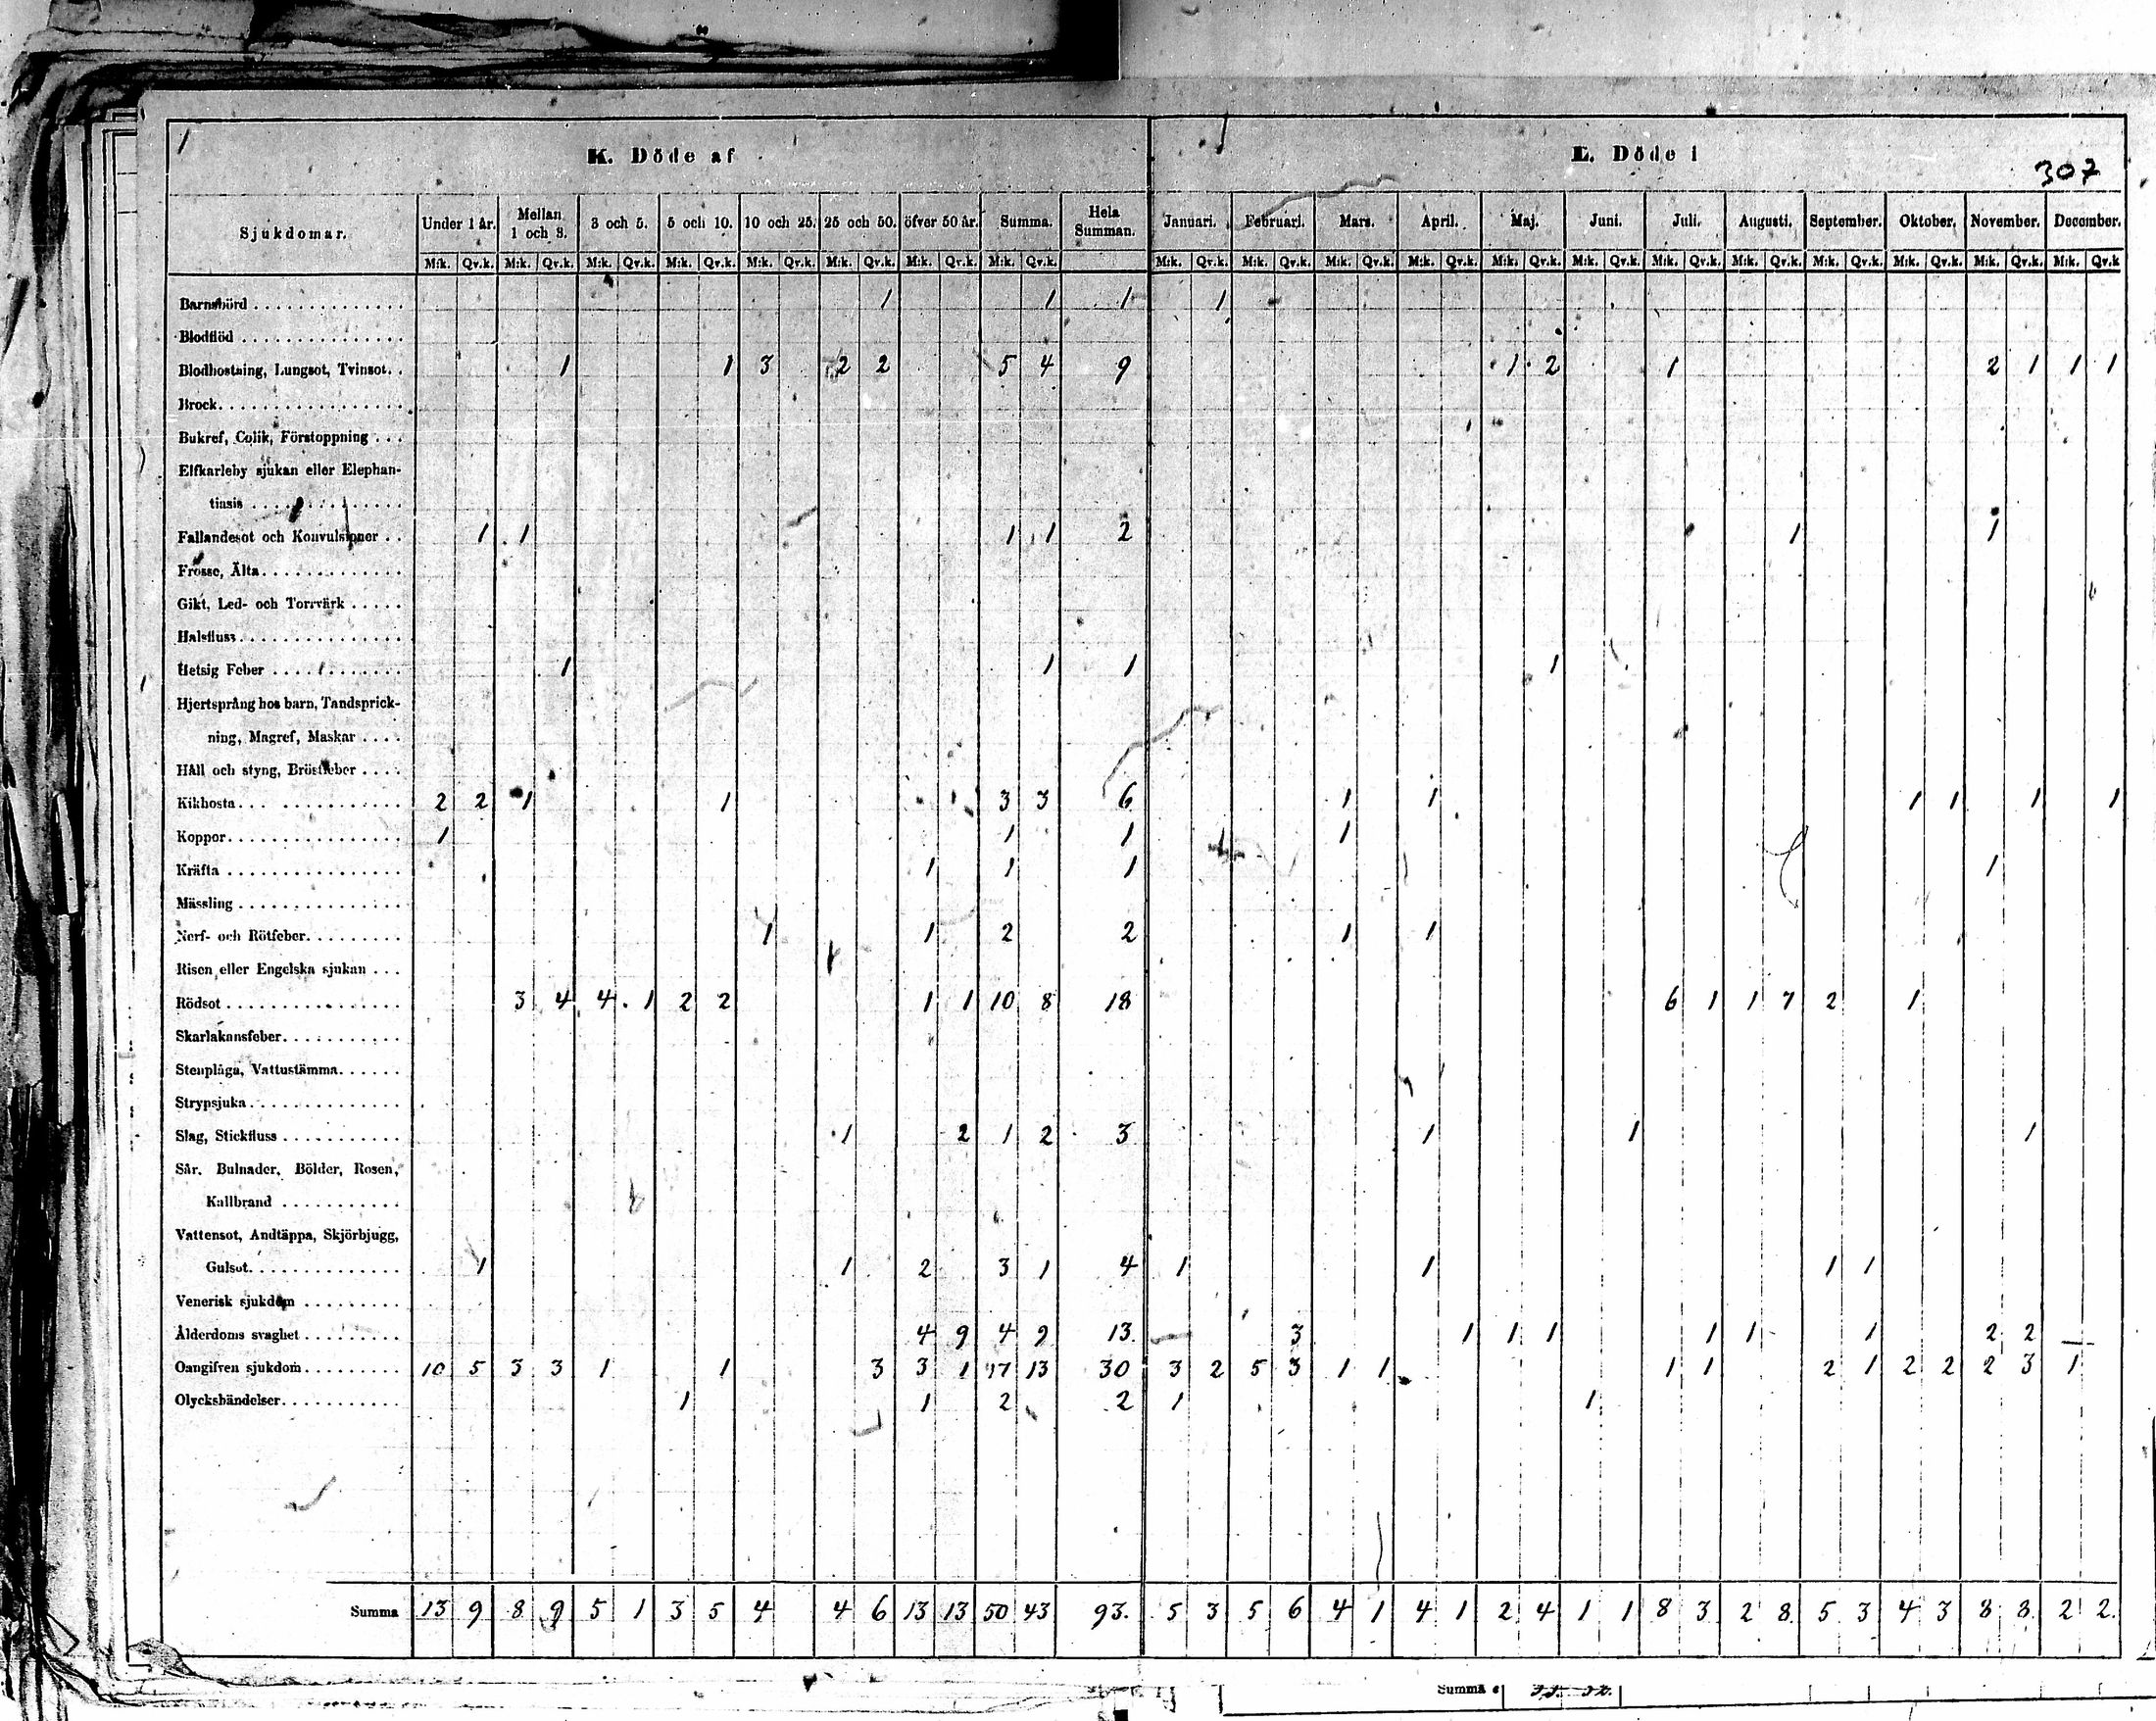 K. Döde af L. Döde i
307
Sjukdomar. Under 1 år. Mellan 1 och 3. 3 och 5. 5 och 10. 10 och 25. 25 och 50. öfver 50 år. Summa. Hela Summan. Januari. Februari. Mars. April. Maj. Juni. Juli. Augusti. September. Oktober. November. December.
M:k. Qv.k. M:k. Qv.k. M:k. Qv.k. M:k. Qv.k. M:k. Qv.k. M:k. Qv.k. M:k. Qv.k. M:k. Qv.k. M:k. Qv.k. M:k. Qv.k. M:k. Qv.k. M:k. Qv.k. M:k. Qv.k. M:k. Qv.k. M:k. Qv.k. M:k. Qv.k. M:k. Qv.k. M:k. Qv.k. M:k. Qv.k. M:k. Qv.k
Barnsbörd 1 1 1 1
Blodflöd
Blodhostning, Lungsot, Tvinsot. 1 1 3 2 2 5 4 9 1 2 1 2 1 1 1
Brock
Bukref, Colik, Förstoppning
Elfkarleby sjukan eller Elephan-
tiasis
Fallandesot och Konvulsioner 1 1 1 1 2 1 1
Frosse, Älta
Gikt, Led- och Torrvärk
Halsfluss
Hetsig Feber 1 1 1 1
Hjertsprång hos barn, Tandsprick-
ning, Magref, Maskar
Håll och styng, Bröstfeber
Kikhosta 2 2 1 1 3 3 6 1 1 1 1 1 1
Koppor 1 1 1 1
Kräfta 1 1 1 1
Mässling
Nerf- och Rötfeber 1 1 2 2 1 1
Risen eller Engelska sjukan
Rödsot 3 4 4 1 2 2 1 1 10 8 18 6 1 1 7 2 1
Skarlakansfeber
Stenplåga, Vattustämma
Strypsjuka
Slag, Stickfluss 1 2 1 2 3 1 1 1
Sår, Bulnader, Bölder, Rosen,
Kallbrand
Vattensot, Andtäppa, Skjörbjugg,
Gulsot 1 1 2 3 1 4 1 1 1 1
Venerisk sjukdom
Ålderdoms svaghet 4 9 4 9 13. 3 1 1 1 1 1 1 2 2
Oangifven sjukdom 10 5 3 3 1 1 3 3 1 17 13 30 3 2 5 3 1 1 1 1 2 1 2 2 2 3 1
Olyckshändelser 1 1 2 2 1 1
Summa 13 9 8 9 5 1 3 5 4 4 6 13 13 50 43 93. 5 3 5 6 4 1 4 1 2 4 1 1 8 3 2 8 5 3 4 3 8 8 2 2.
Summa